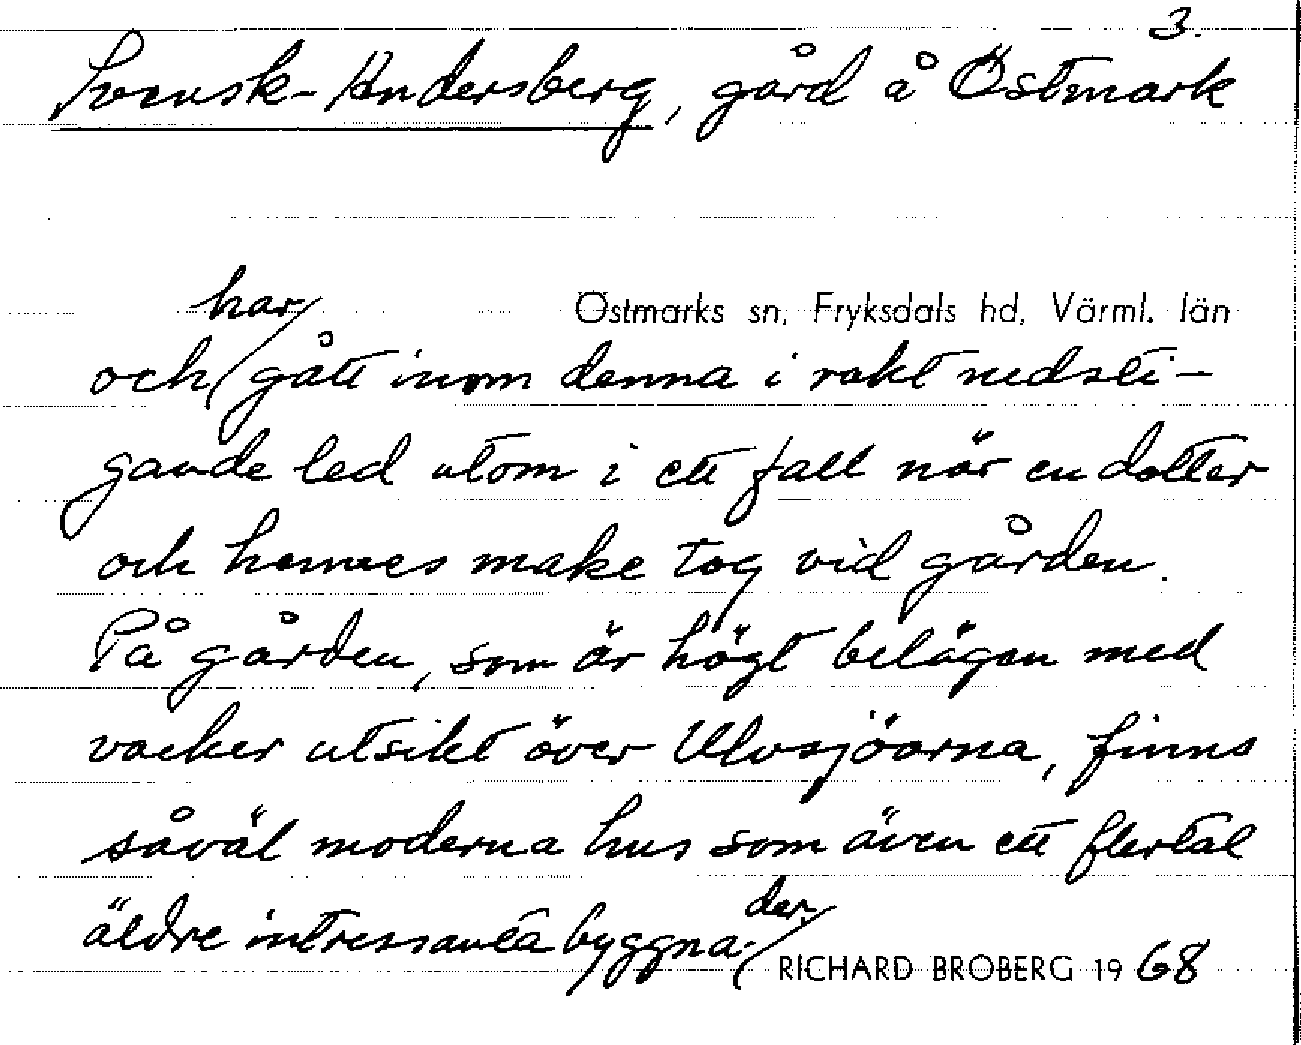 3.
Svensk-Andersberg, gård å Östmark
Östmarks sn, Fryksdals hd, Värml. län
och har gått inom denna i rakt nedsti-
gande led utom i ett fall när en dotter
och hennes make tog vid gården.
På gården, som är högt belägen med
vacker utsikt över Ulvsjöarna, finns
såväl moderna hus som även ett flertal
äldre intressanta byggnader.
RICHARD BROBERG 1968